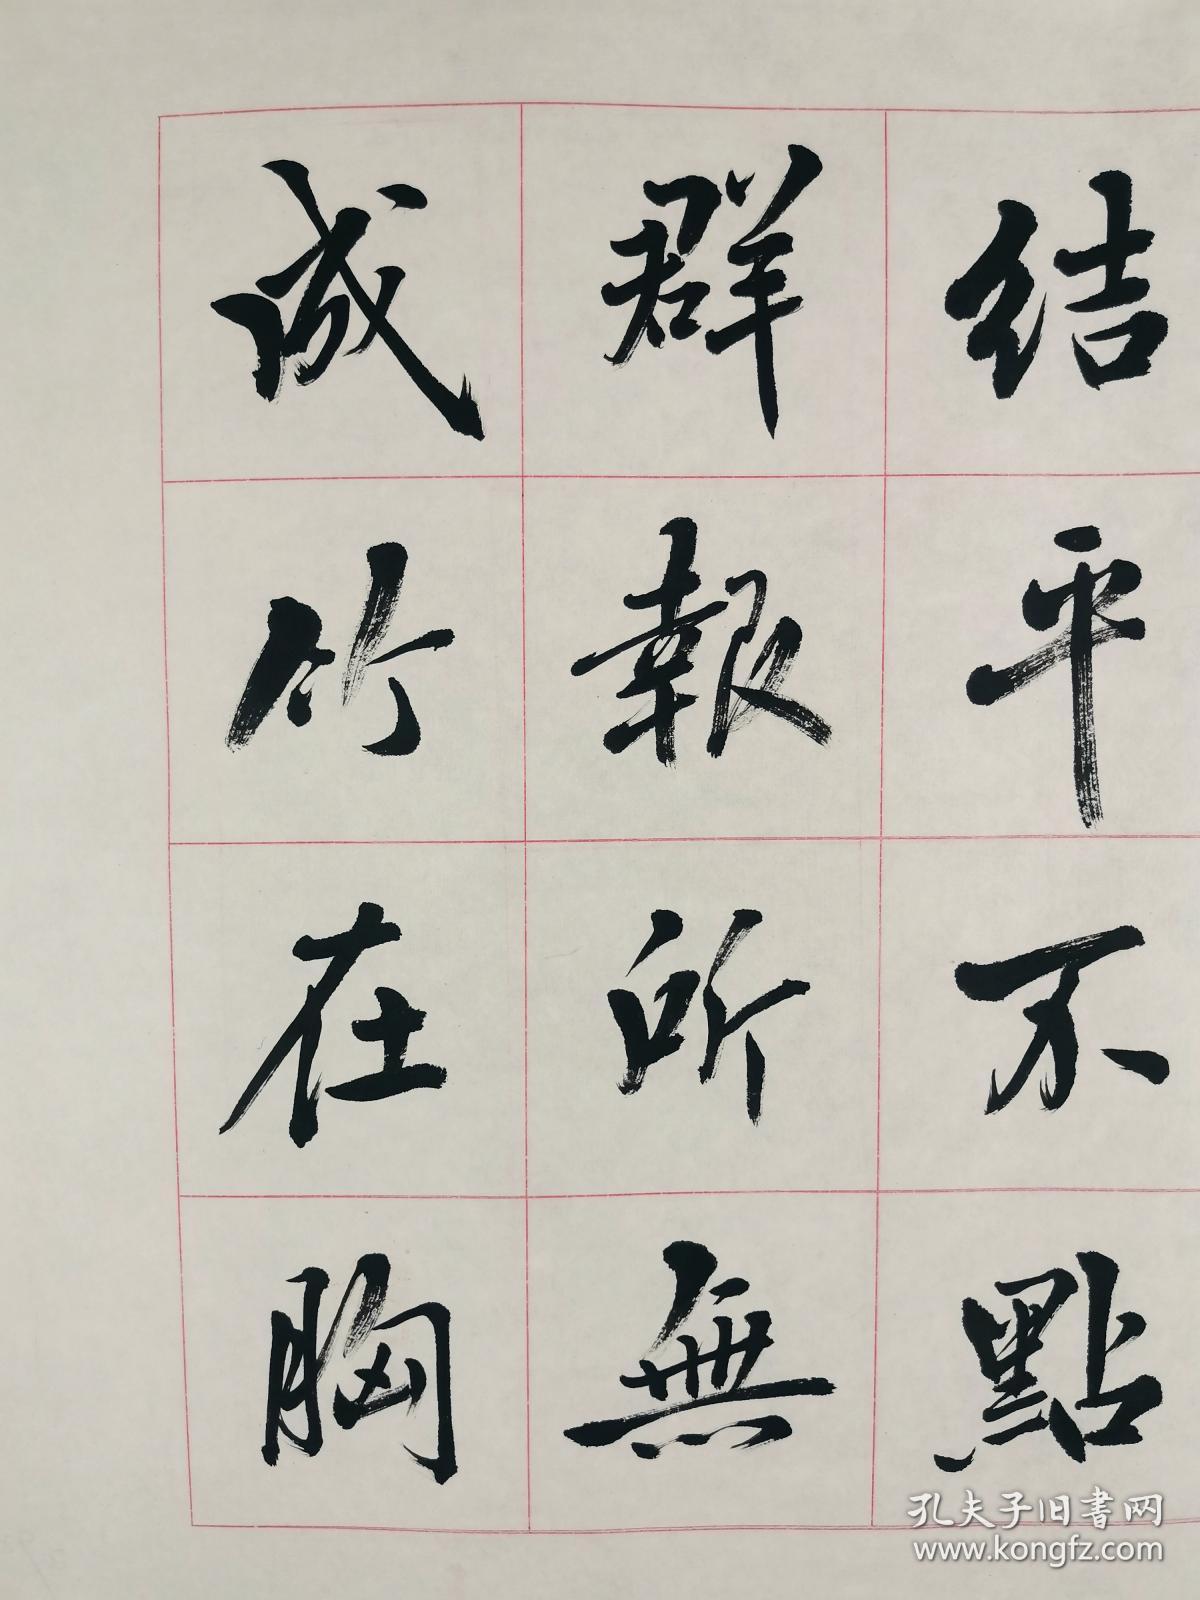 结平不點
群報所無
成竹在胸
孔夫子旧書网
www.kongfz.com